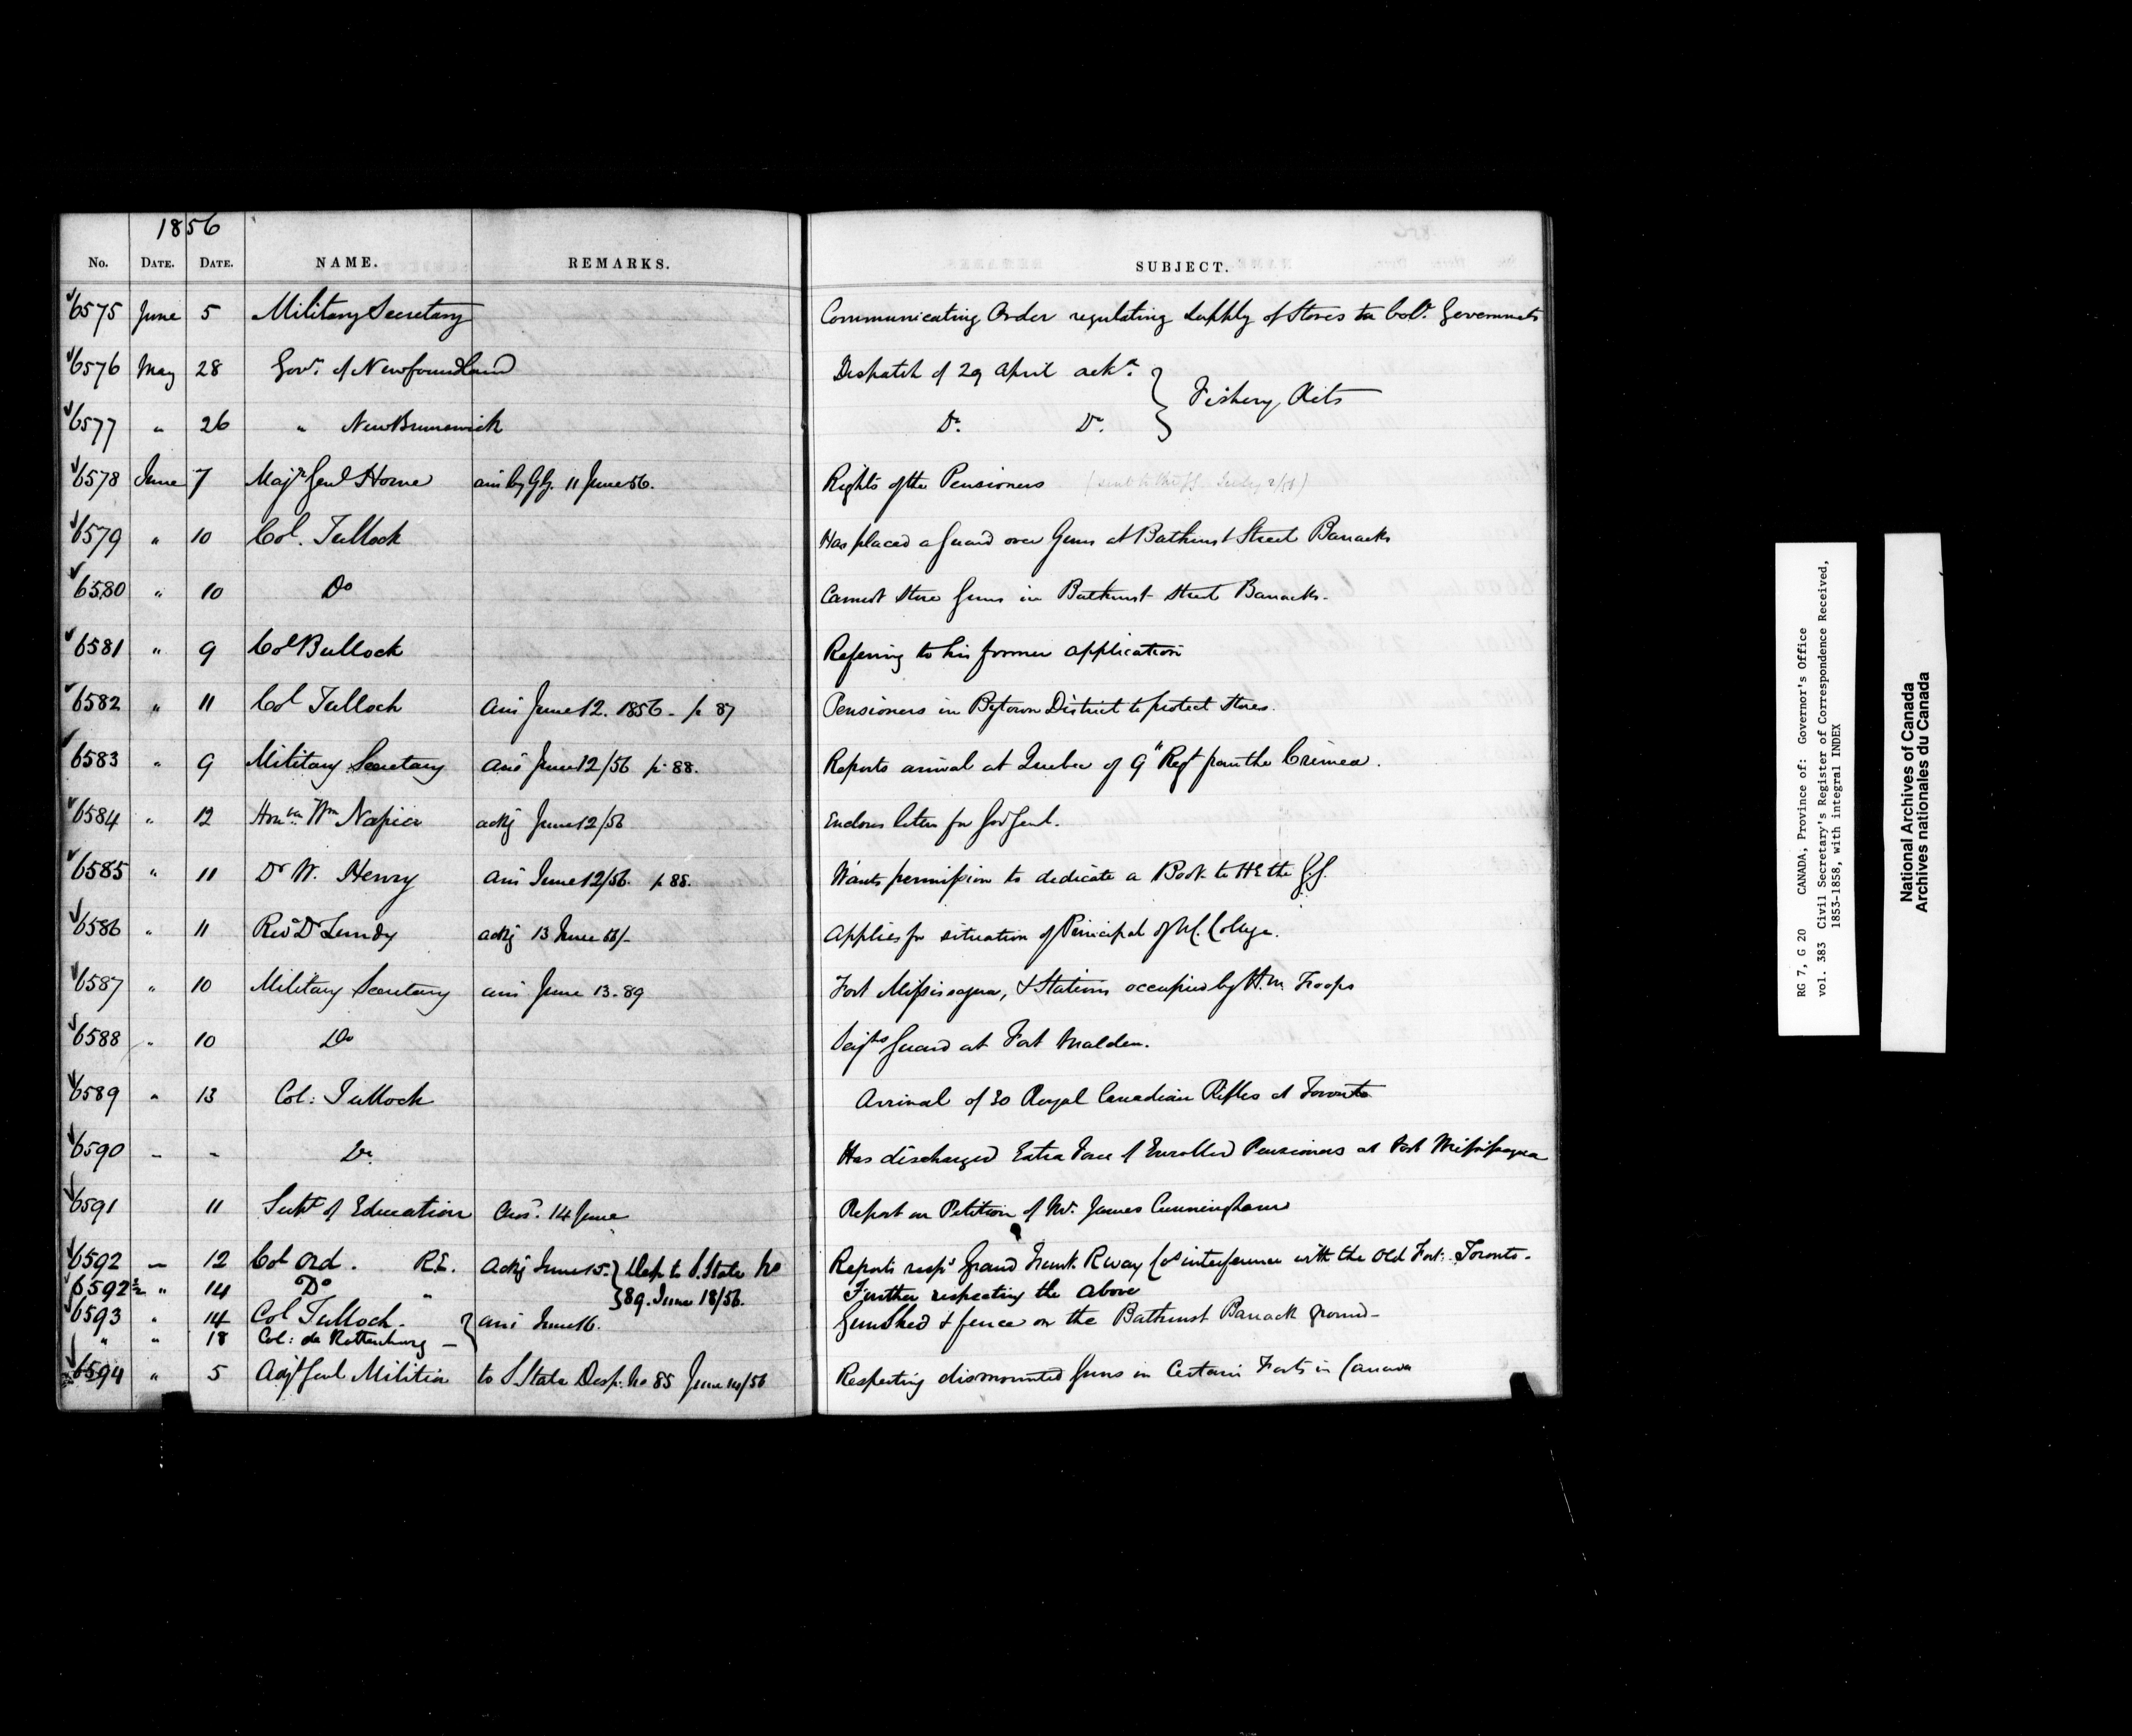 1856
No. DATE. DATE. NAME. REMARKS. SUBJECT.
6575 June 5 Military Secretary Communicating Order regulating supply of Stores to Col. Governments
6576 May 28 Govr. of Newfoundland Dispatch of 29 April ackd. } Fishery Acts
6577 " 26 " New Brunswick Do. Do.
6578 June 7 Majr Genl Horne ans by GG. 11 June 56. Rights of the Pensioners
6579 " 10 Col. Tulloch Has placed a Guard over Guns at Bathurst Street Barracks
6580 " 10 Do Cannot store Guns in Bathurst Street Barracks.
6581 " 9 Col Bullock Refering to his former application
6582 " 11 Col Tulloch Ans June 12. 1856 - p 87 Pensioners in Bytown District to protect Stores.
6583 " 9 Military Secretary Ans June 12/56 p. 88. Reports arrival at Quebec of 9" Regt from the Crimea.
6584 " 12 Wm Napier ackg June 12/56 Encloses letter for Gov Genl.
6585 " 11 Dr W. Henry Ans June 12/56. p 88. Wants permission to dedicate a Book to HE the G.G.
6586 " 11 Revd Dr Lundy ackg 13 June 56/- Applies for situation of Principal of M. College.
6587 " 10 Military Secretary ans June 13. 89 Fort Missisagua, & Stations occupied by H.M. Troops
6588 " 10 Do Sergts Guard at Fort Malden.
6589 " 13 Col: Tulloch Arrival of 30 Royal Canadian Rifles at Toronto
6590 - - Do. Has discharged Extra Force of Enrolled Pensioners at Fort Missisagua
6591 11 Supt of Education Ans. 14 June Report on Petition of Mr. James Cunningham
6592 - 12 Col Ord. R.E. Ackg June 15. } Desp to S. State No Reports respg Grand Trunk Rway Cos interference with the Old Fort: Toronto.
6592½ " 14 Do " } 89. June 18/56. Further respecting the above
6593 " 14 Col Tulloch. } ans June 16. Gun Shed & fence on the Bathurst Barrack ground -
" " 18 Col: de Rottenburg -
6594 " 5 Adjt Genl Militia to S State Desp. No 85 June 14/56 Respecting dismounted Guns in Certain Forts in Canada
RG 7, G 20 CANADA, Province of: Governor's Office
vol. 383 Civil Secretary's Register of Correspondence Received,
1853-1858, with integral INDEX
National Archives of Canada
Archives nationales du Canada